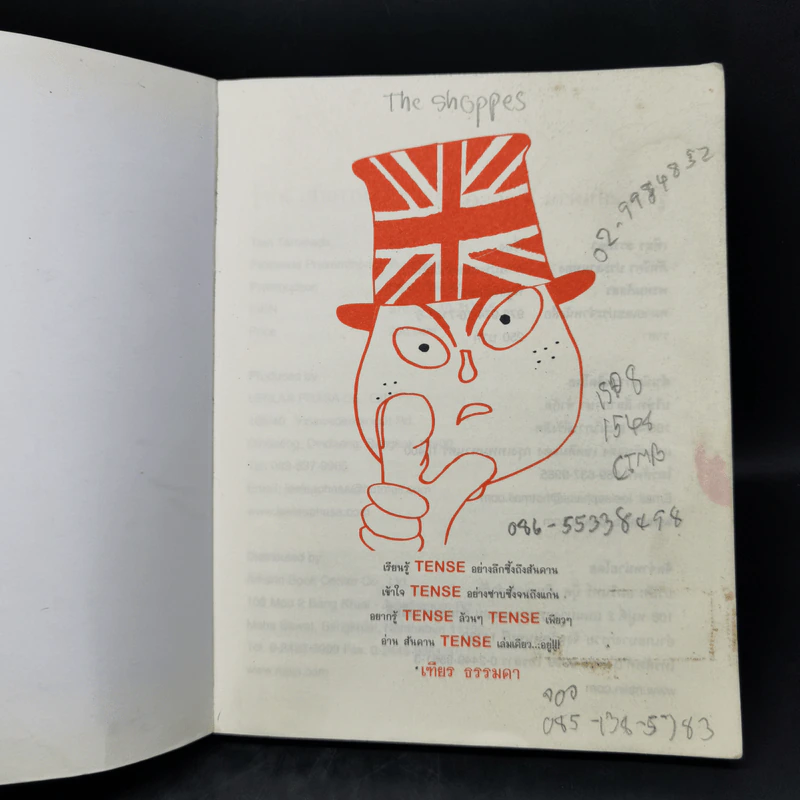 The shoppes
02-9984832
1548
CIMB
086-55338498
เรียนรู้ TENSE อย่างลึกซึ้งถึงสันดาน
เข้าใจ TENSE อย่างซาบซึ้งจนถึงแก่น
อยากรู้ TENSE ล้วนๆ TENSE เพียวๆ
อ่าน สันดาน TENSE เล่มเดียว...อยู่!!!
เฑียร ธรรมดา
085-138-5783